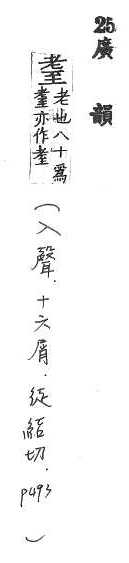 25廣韻
耊 老也八十爲
耋亦作耊
(入聲．十六屑．徒結切．p493)